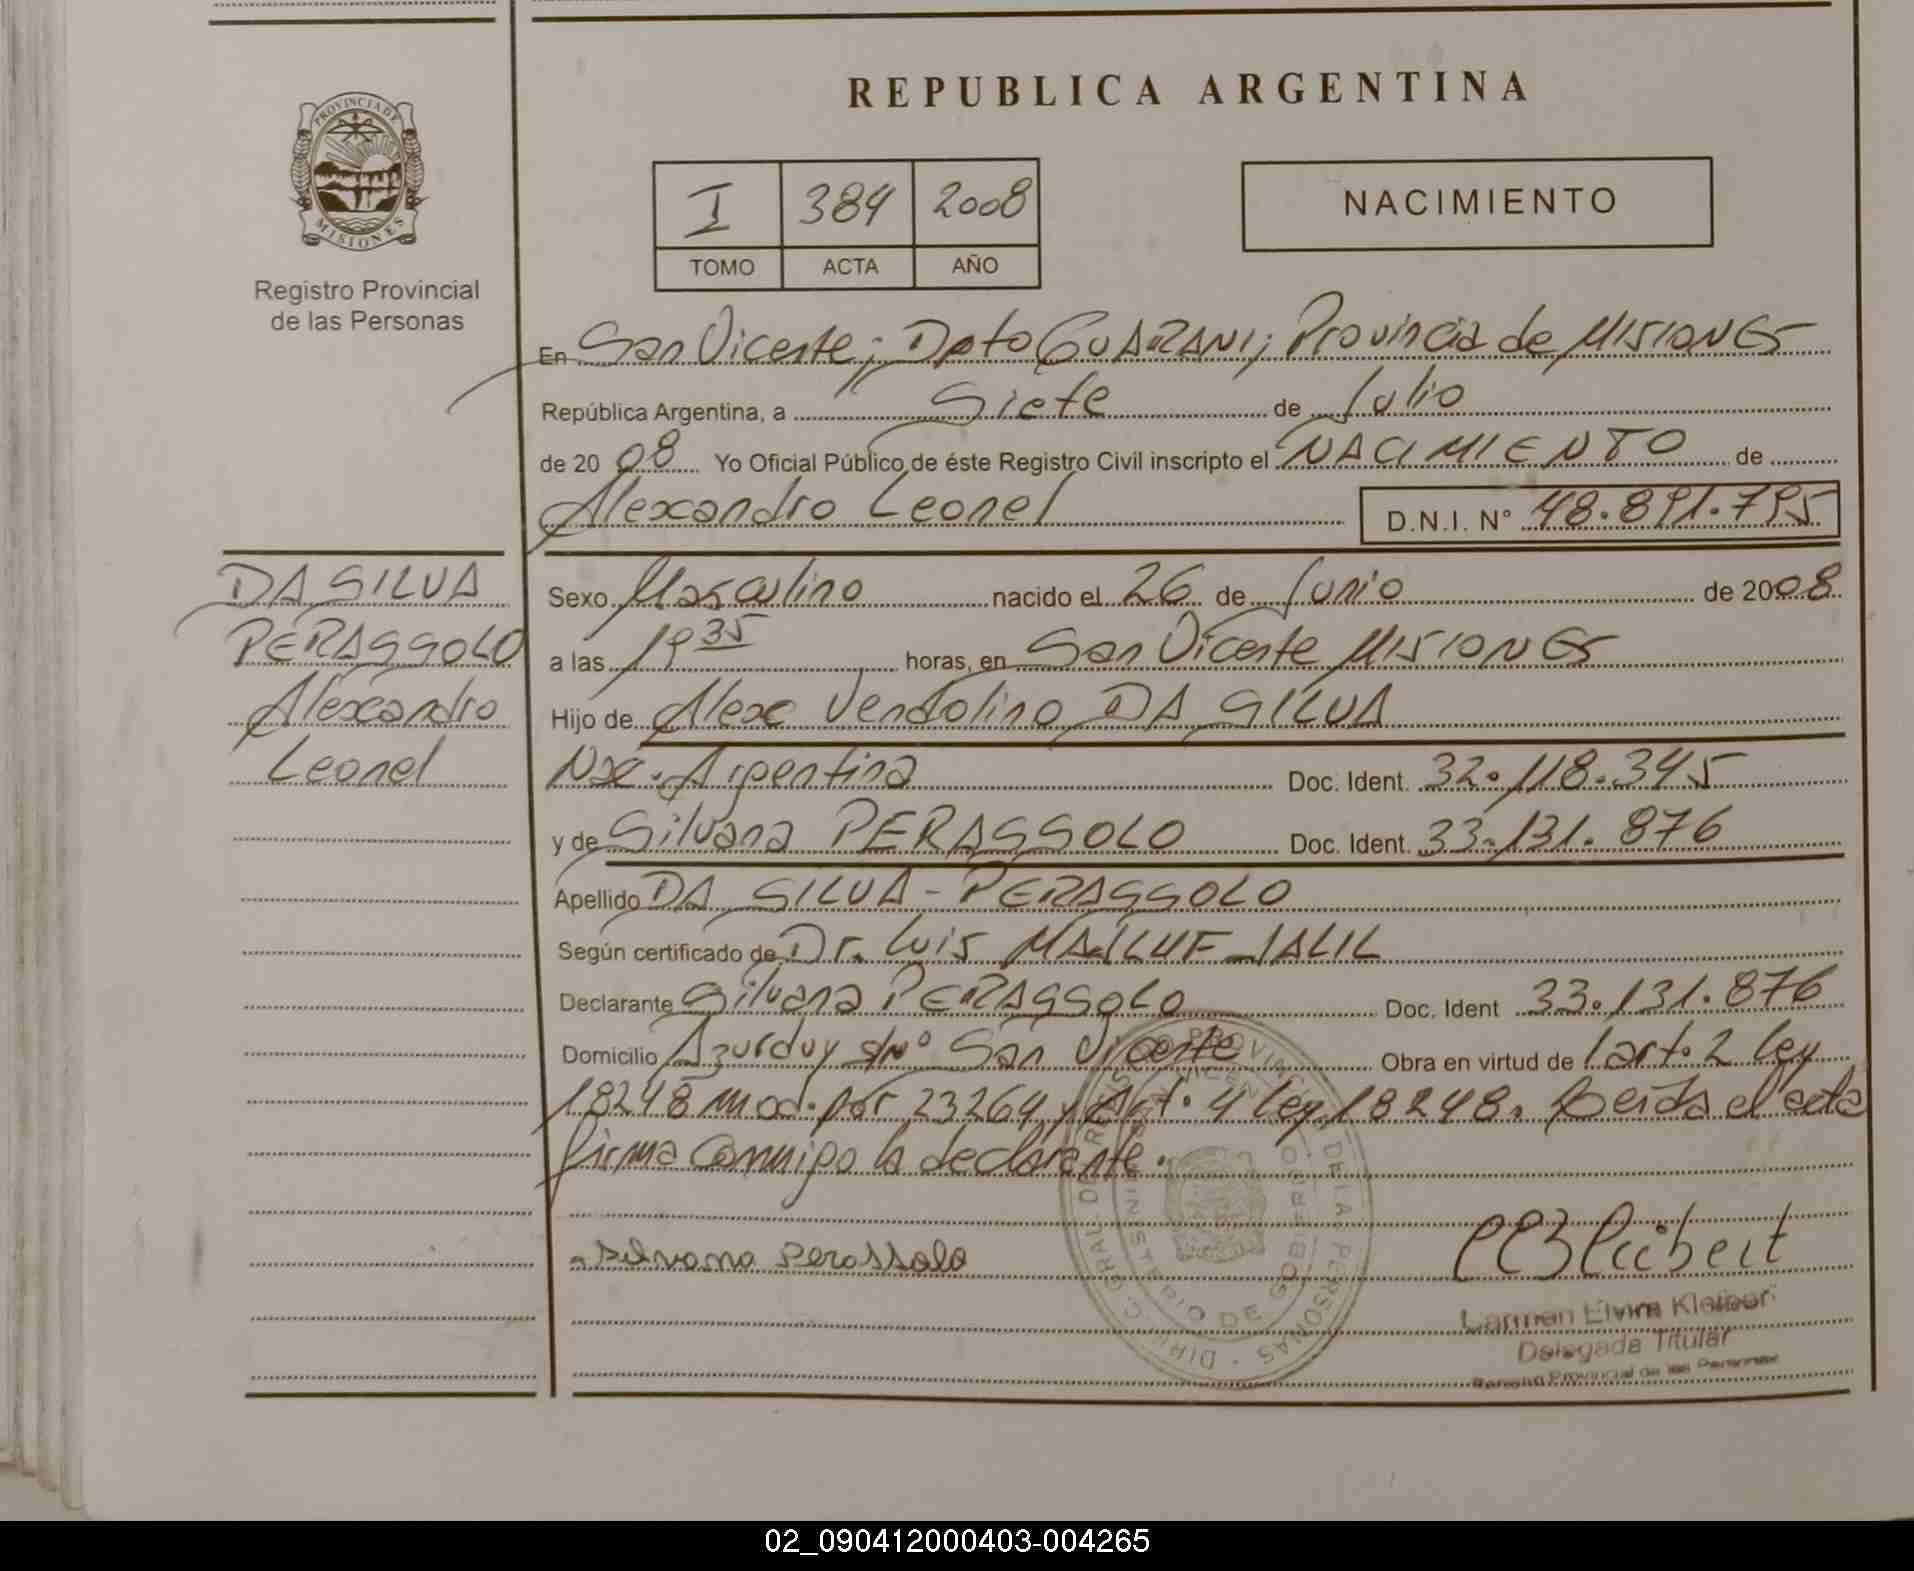 REPUBLICA ARGENTINA
PROVINCIA DE
MISIONES
Registro Provincial
de las Personas
I 384 2008
TOMO ACTA AÑO
NACIMIENTO
En San Vicente; Dpto GUARANI; Provincia de MISIONES
República Argentina, a Siete de Julio
de 2008 Yo Oficial Público de éste Registro Civil inscripto el NACIMIENTO de
Alexandro Leonel D.N.I. N° 48.891.795
DA SILVA
PERASSOLO
Alexandro
Leonel
Sexo Masculino nacido el 26 de Junio de 2008
a las 19 35 horas, en San Vicente MISIONES
Hijo de Alexe Vendolino DA SILVA
Nac. Argentina Doc. Ident. 32.118.345
y de Silvana PERASSOLO Doc. Ident. 33.131.876
Apellido DA SILVA - PERASSOLO
Según certificado de Dr. Luis JALIL
Declarante Silvana PERASSOLO Doc. Ident 33.131.876
Domicilio Azurduy s/n° San Vicente Obra en virtud de l art. 2 ley
18248 mod. por 23264 y Art. 4 ley 18248. Leída el acta
firma conmigo la declarante.
Silvana Perassolo
Carmen Elvira
Delegada Titular
Registro Provincial de las Personas
02_090412000403-004265